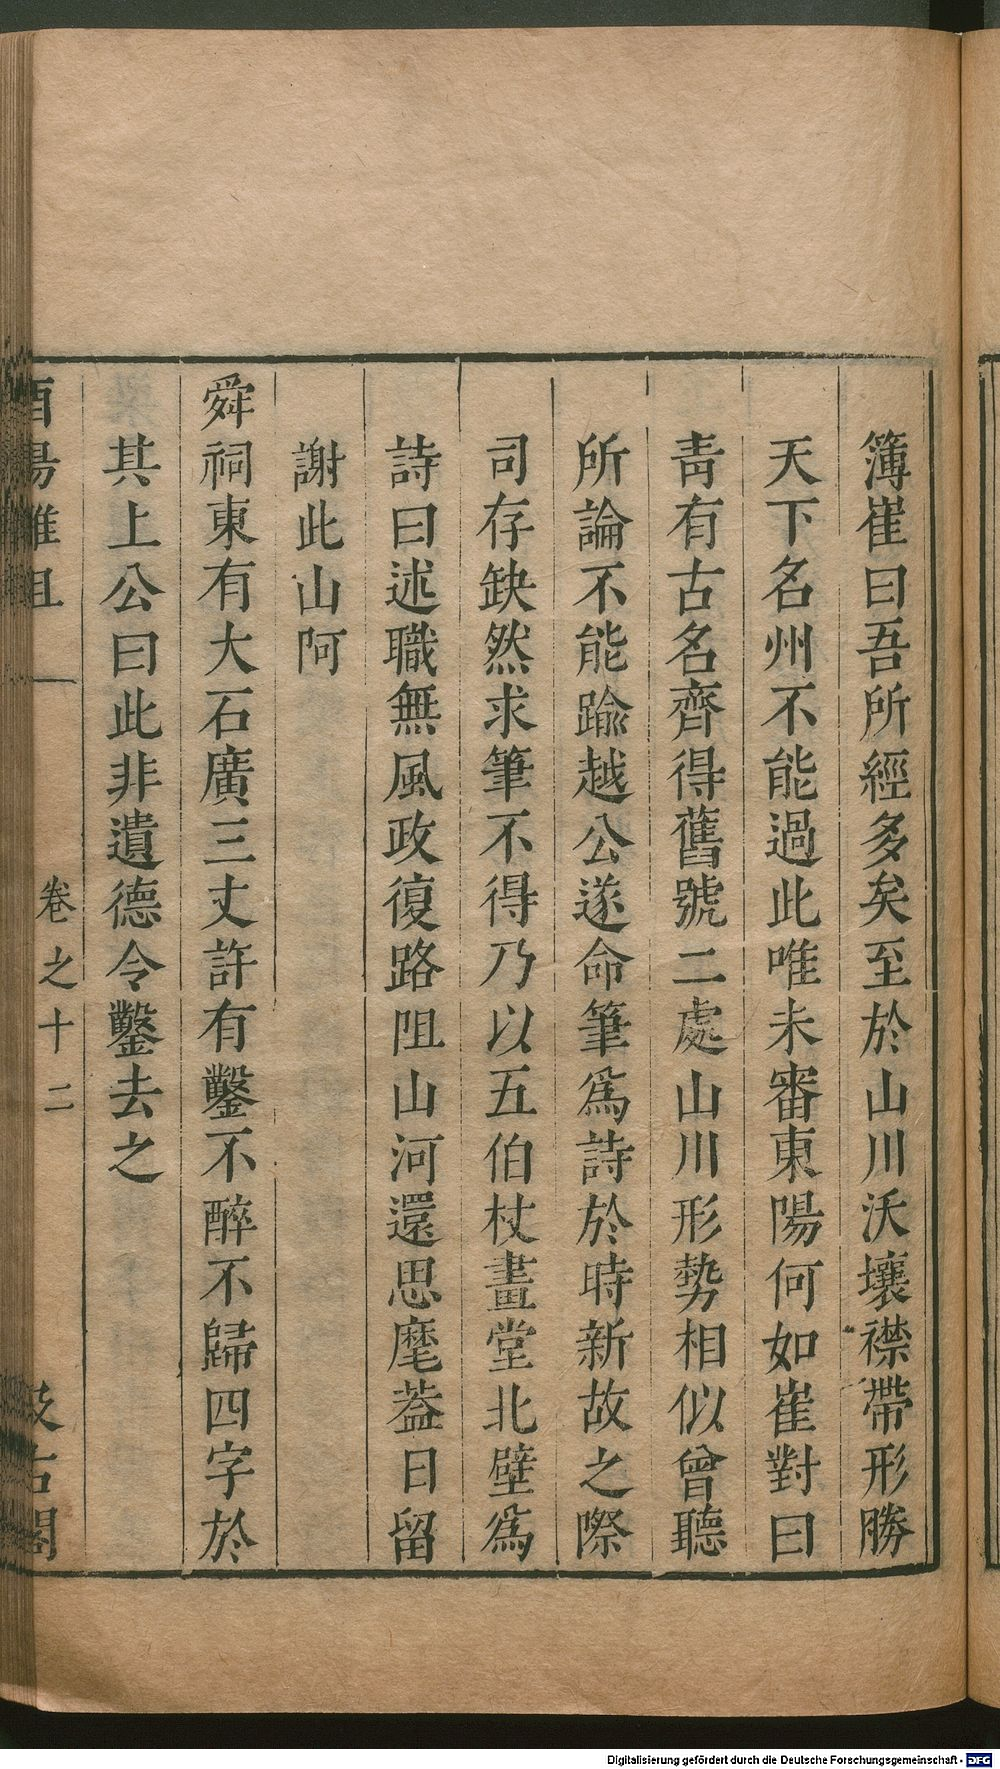 簿崔曰吾所經多矣至於山川沃壤襟帶形勝
天下名州不能過此唯未審東陽何如崔對曰
青有古名齊得舊號二處山川形勢相似曾聽
所論不能踰越公遂命筆爲詩於時新故之際
司存缺然求筆不得乃以五伯杖畫堂北壁爲
詩曰述職無風政復路阻山河還思麾葢日留
謝此山阿
舜祠東有大石廣三丈許有鑿不醉不歸四字於
其上公曰此非遺德令鑿去之
酉陽雜俎
卷之十二
汲古閣
Digitalisierung gefördert durch die Deutsche Forschungsgemeinschaft - DFG